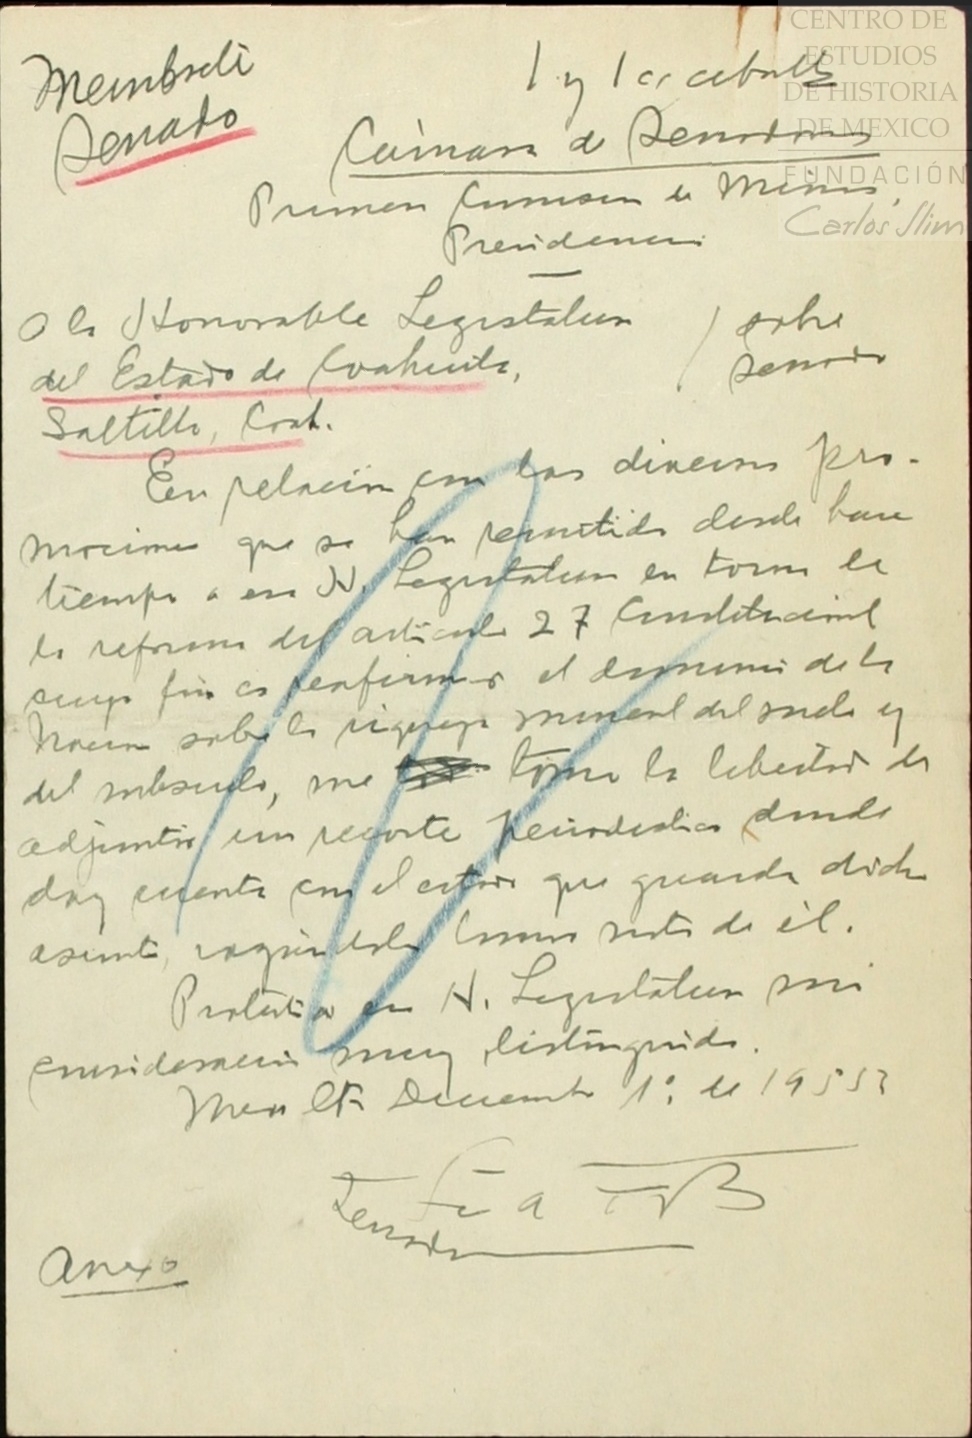 Membrete
Senado
1 y 1 a caballo
Cámara de Senadores
Primera Comision de Minas,
Presidencia
A la Honorable Legislatura
del Estado de Coahuila,
Saltillo, Coah.
sobre
Senado
En relación con las diversas pro-
mociones que se han remitido desde hace
tiempo a esa H. Legislatura en torno de
la reforma del artículo 27 Constitucional
cuyo fin es reafirmar el dominio de la
Nacion sobre la riqueza mineral del suelo y
del subsuelo, me tomo la libertad de
adjuntar un recorte periodistico donde
doy cuenta con el estado que guarda dicho
asunto, rogándole tomar nota de él.
Protesto a esa H. Legislatura mi
consideracion muy distinguida.
Mex Diciembre 1º de 1953
Senador
Anexo
CENTRO DE
ESTUDIOS
DE HISTORIA
DE MEXICO
FUNDACIÓN
Carlos Slim